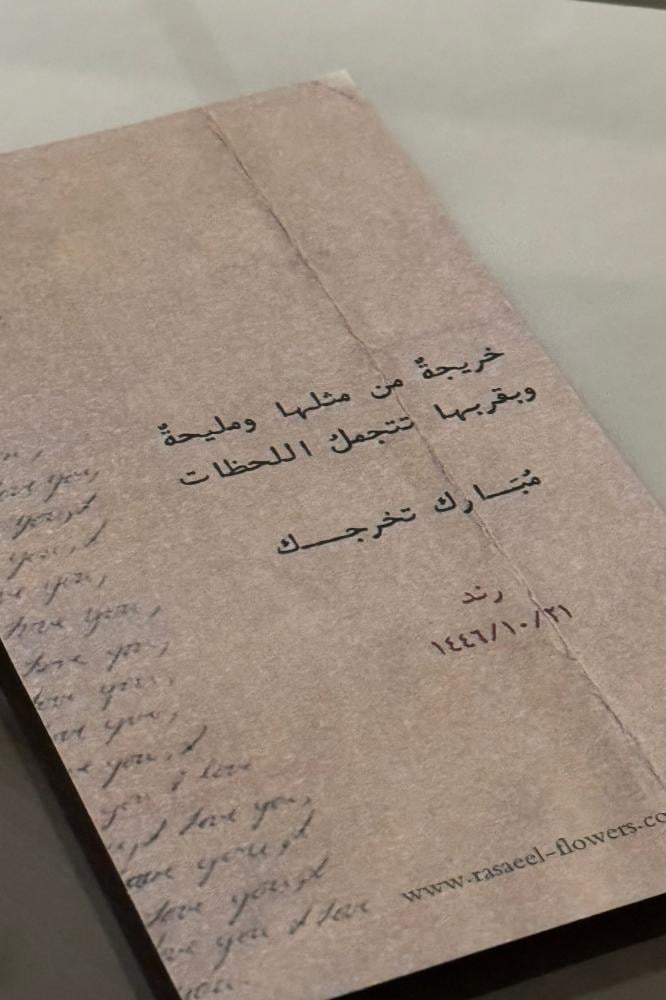 خريجةٌ من مثلها ومليحةٌ
وبقربها تتجملُ اللحظات
مُبَـــارك تخرجـــك
رند
١٤٤٦/١٠/٢١
you,
love you,
you, I
you, I
love you,
love you,
love you,
love you,
you,
you, I
you I love
I love you,
love you, I
love you, I
love you I love
you.
www.rasaeel-flowers.co